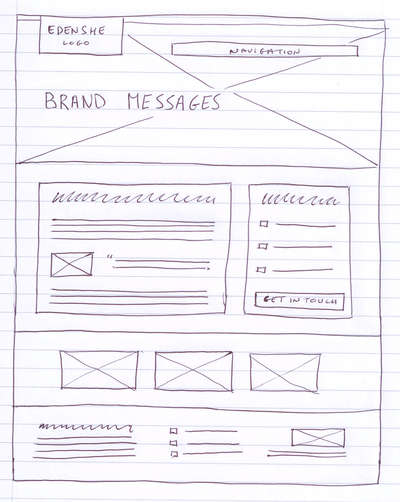 EDENSHE
LOGO
NAVIGATION
BRAND MESSAGES
GET IN TOUCH